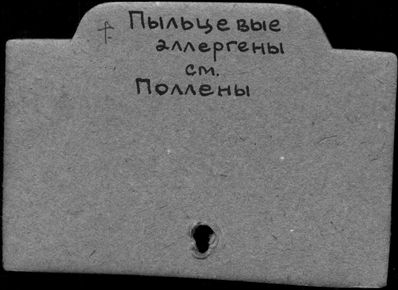 † Пыльцевые
аллергены
см.
Поллены